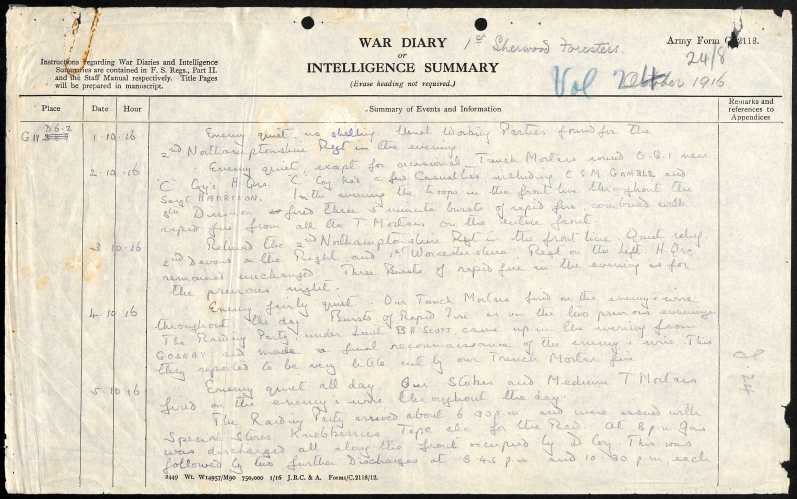 WAR DIARY
or
INTELLIGENCE SUMMARY
(Erase heading not required.)
1st Sherwood Foresters.
Army Form C. 2118.
24/8
Vol
October 1916
Instructions regarding War Diaries and Intelligence
Summaries are contained in F. S. Regs., Part II.
and the Staff Manual respectively. Title Pages
will be prepared in manuscript.
Place Date Hour Summary of Events and Information Remarks and references to Appendices
1.10.16 Enemy quiet, no shelling. Usual Working Parties found for the
2nd Northamptonshire Regt in the evening.
2.10.16 Enemy quiet, except for occasional Trench Mortars round G.Q.1 near
"C" Coy's H.Qrs. "C" Coy had a few Casualties including C S M GAMBLE and
Sergt HARRISON. In the evening the troops in the front line throughout the
8th Division fired three 5 minute bursts of rapid fire combined with
rapid fire from all the T Mortars on the entire front.
3.10.16 Relieved the 2nd Northamptonshire Regt in the front line. Quiet relief
2nd Devons on the Right and 1st Worcestershire Regt on the Left. H.Qrs
remained unchanged. Three Bursts of rapid fire in the evening as for
the previous night.
4.10.16 Enemy fairly quiet. Our Trench Mortars fired on the enemy's wire
throughout the day. Bursts of Rapid Fire as on the two previous evenings
The Raiding Party under Lieut SCOTT came up in the evening from
GOSNAY and made a final reconnaissance of the enemy's wire. This
they reported to be very little cut by our Trench Mortar fire
5.10.16 Enemy quiet all day. Our Stokes and Medium T Mortars
fired on the enemy's wire throughout the day.
The Raiding Party arrived about 6.30 pm and were issued with
Special Stores, Knobkerries Tape etc for the Raid. At 8 pm Gas
was discharged all along the front occupied by D Coy. This was
followed by two further discharges at 8.45 pm and 10.30 pm each
24
2449 Wt. W14957/M90 750,000 1/16 J.B.C. & A. Forms/C.2118/12.